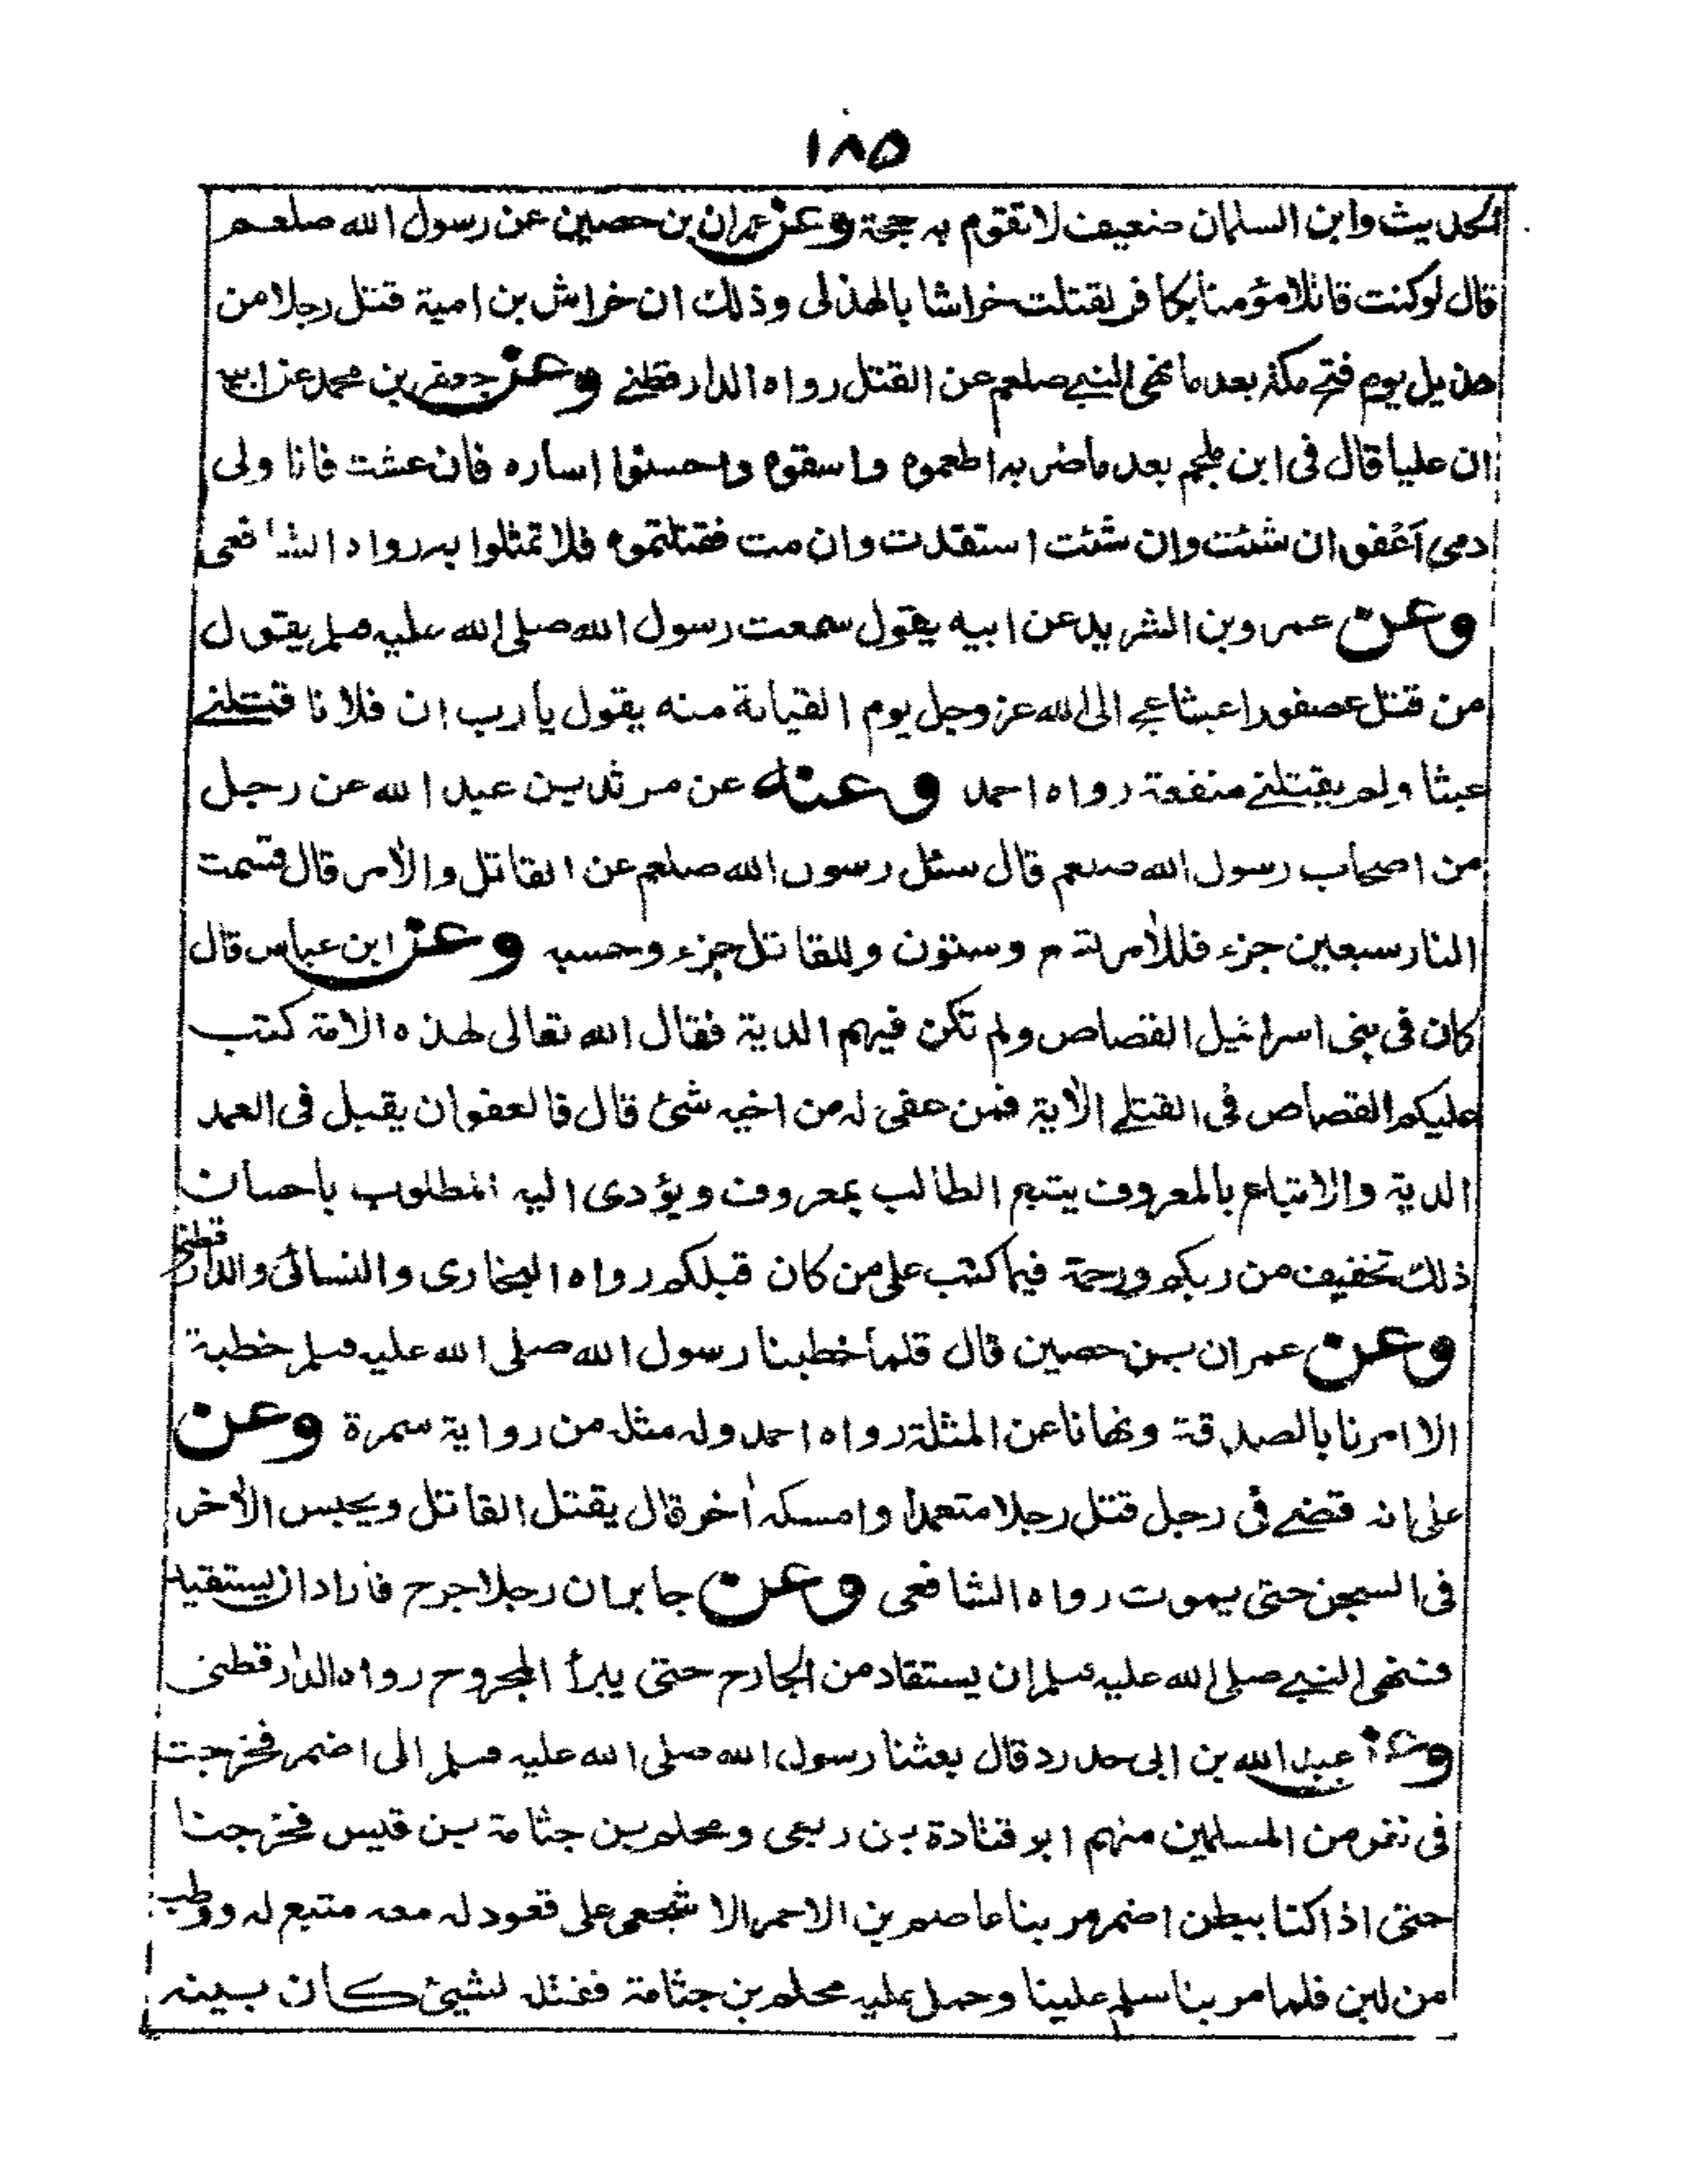 ١٨٥
الحديث وابن السلمان ضعيف لا تقوم به حجة وعن عمران بن حصين عن رسول الله صلعم
قال لو كنت قاتلا مؤمنا بكافر لقتلت خراشا بالهذلى وذلك ان خراش بن امية قتل رجلا من
هذيل يوم فتح مكة بعد ما نهى النبي صلعم عن القتل رواه الدارقطنے وعن جعفر بن محمد عن ابيه
ان عليا قال فى ابن ملجم بعد ما ضربه اطعموه واسقوه واحسنوا اساره فان عشت فانا ولى
دمى اَعْفو ان شئت وان شئت استقدت وان مت فقتلتموه فلا تمثلوا به رواه الشافعى
وعن عمرو بن الشريد عن ابيه يقول سمعت رسول الله صلى الله عليه وسلم يقول
من قتل عصفورا عبثا عج الى الله عز وجل يوم القيامة منه يقول يا رب ان فلانا قتلنے
عبثا ولم يقتلنے منفعة رواه احمد وعنه عن مرثد بن عبد الله عن رجل
من اصحاب رسول الله صلعم قال سئل رسول الله صلعم عن القاتل والآمر قال قسمت
النار سبعين جزء فللآمر تسع وستون وللقاتل جزء وحسبه وعن ابن عباس قال
كان فى بنى اسرائيل القصاص ولم تكن فيهم الدية فقال الله تعالى لهذه الامة كتب
عليكم القصاص فى القتلے الآية فمن عفى له من اخيه شئ قال فالعفو ان يقبل فى العمد
الدية والاتباع بالمعروف يتبع الطالب بمعروف ويؤدى اليه المطلوب باحسان
ذلك تخفيف من ربكم ورحمة فيما كتب على من كان قبلكم رواه البخارى والنسائى والدارقطنى
وعن عمران بن حصين قال قلما خطبنا رسول الله صلى الله عليه وسلم خطبة
الا امرنا بالصدقة ونهانا عن المثلة رواه احمد وله مثله من رواية سمرة وعن
على انه قضے فى رجل قتل رجلا متعمدا وامسكه آخر قال يقتل القاتل ويحبس الآخر
فى السجن حتى يموت رواه الشافعى وعن جابر ان رجلا جرح فاراد ان يستقيد
فنهى النبے صلى الله عليه وسلم ان يستقاد من الجارح حتى يبرأ المجروح رواه الدارقطنى
وعن عبد الله بن ابى حدرد قال بعثنا رسول الله صلى الله عليه وسلم الى اضم فخرجت
فى نفر من المسلمين منهم ابو قتادة بن ربعى ومحلم بن جثامة بن قيس فخرجنا
حتى اذا كنا ببطن اضم مر بنا عاصم بن الاحمر الاشجعى على قعود له معه متيع له ووطب
من لبن فلما مر بنا سلم علينا وحمل عليه محلم بن جثامة فقتله لشيئ كان بينه